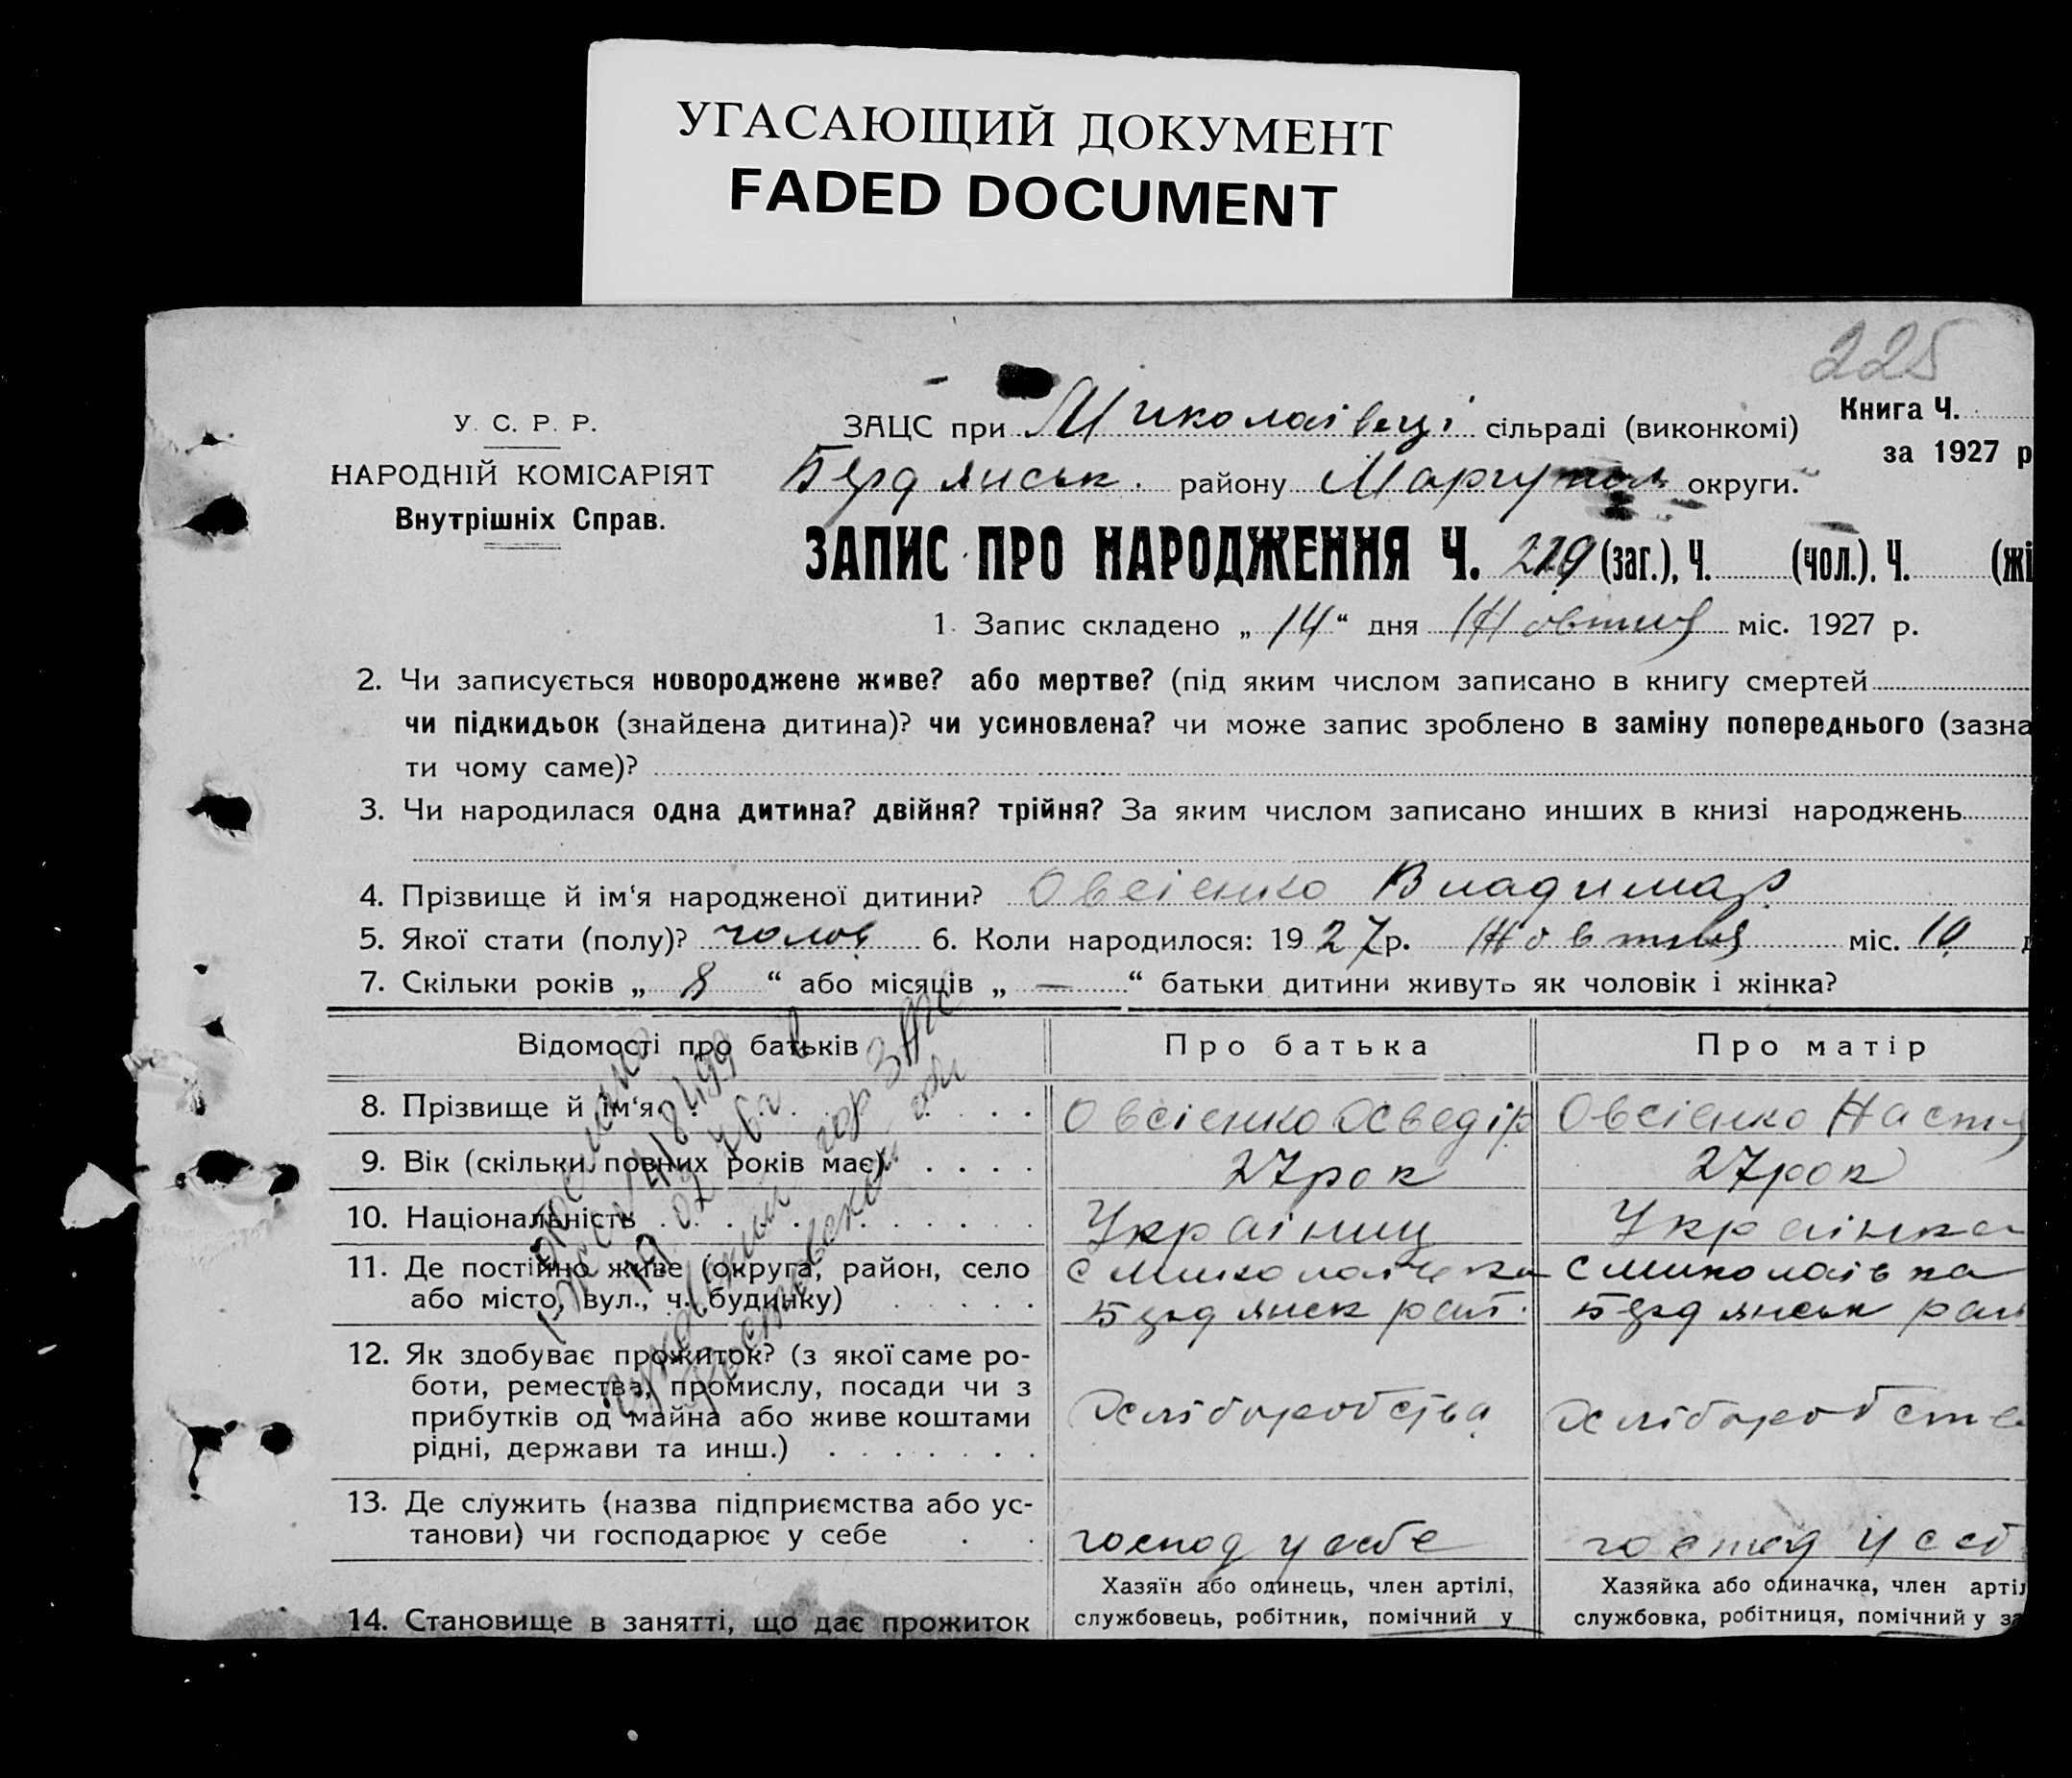 УГАСАЮЩИЙ ДОКУМЕНТ
FADED DOCUMENT
225
У. С. Р. Р.
НАРОДНІЙ КОМІСАРІЯТ
Внутрішніх Справ.
ЗАЦС при Миколаівеці сільраді (виконкомі)
Книга Ч.
за 1927 р
Бердянськ. району Маріупол округи.
ЗАПИС ПРО НАРОДЖЕННЯ Ч. 219 (заг.), Ч. (чол.), Ч. (жі
1. Запис складено „ 14 “ дня Жовтня міс. 1927 р.
2. Чи записується новороджене живе? або мертве? (під яким числом записано в книгу смертей
чи підкидьок (знайдена дитина)? чи усиновлена? чи може запис зроблено в заміну попереднього (зазна
ти чому саме)?
3. Чи народилася одна дитина? двійня? трійня? За яким числом записано инших в книзі народжень
4. Прізвище й ім‘я народженої дитини? Овсіенко Владимар
5. Якої стати (полу)? чолов. 6. Коли народилося: 1927 р. Жовтня міс. 10
7. Скільки років „ 8 “ або місяців „ — “ батьки дитини живуть як чоловік і жінка?
Відомості про батьків
Про батька
Про матір
8. Прізвище й ім‘я
Овсіенко Хведір
Овсіенко Настя
9. Вік (скільки повних років має)
27 рок
27 рок
10. Національність
Украінец
Украінка
11. Де постійно живе (округа, район, село
або місто, вул., ч. будинку)
с Миколаівка
Бердянск рай.
с Миколаівка
Бердянськ рай
12. Як здобуває прожиток? (з якої саме ро-
боти, ремества, промислу, посади чи з
прибутків од майна або живе коштами
рідні, держави та инш.)
Хліборобства
Хліборобств
13. Де служить (назва підприємства або ус-
танови) чи господарює у себе
господ у себе
господ у себ
14. Становище в занятті, що дає прожиток
Хазяїн або одинець, член артілі,
службовець, робітник, помічний у
Хазяйка або одиначка, член артіл
службовка, робітниця, помічний у за